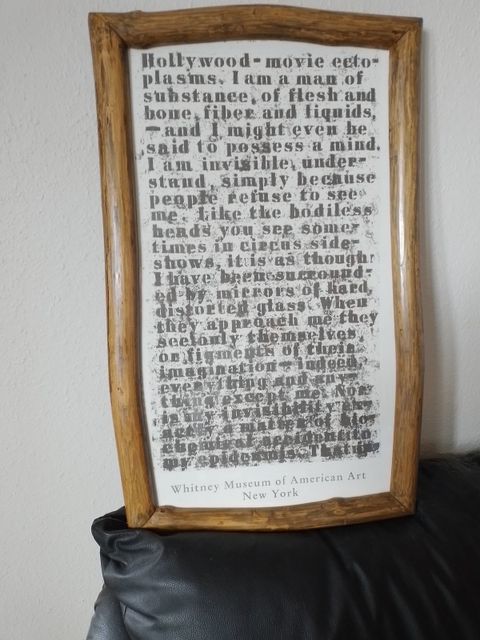 Hollywood-movie ecto-
plasms. I am a man of
substance, of flesh and
bone, fiber and liquids,
—and I might even be
said to possess a mind.
I am invisible, under-
stand, simply because
people refuse to see
me. Like the bodiless
heads you see some-
times in circus side-
shows, it is as though
I have been surround-
ed by mirrors of hard,
distorted glass. When
they approach me they
see only themselves,
or figments of their
imagination—indeed,
everything and any-
thing except me. Nor
is my invisibility ex-
actly a matter of bio-
chemical accident to
my epidermis. That in-
Whitney Museum of American Art
New York